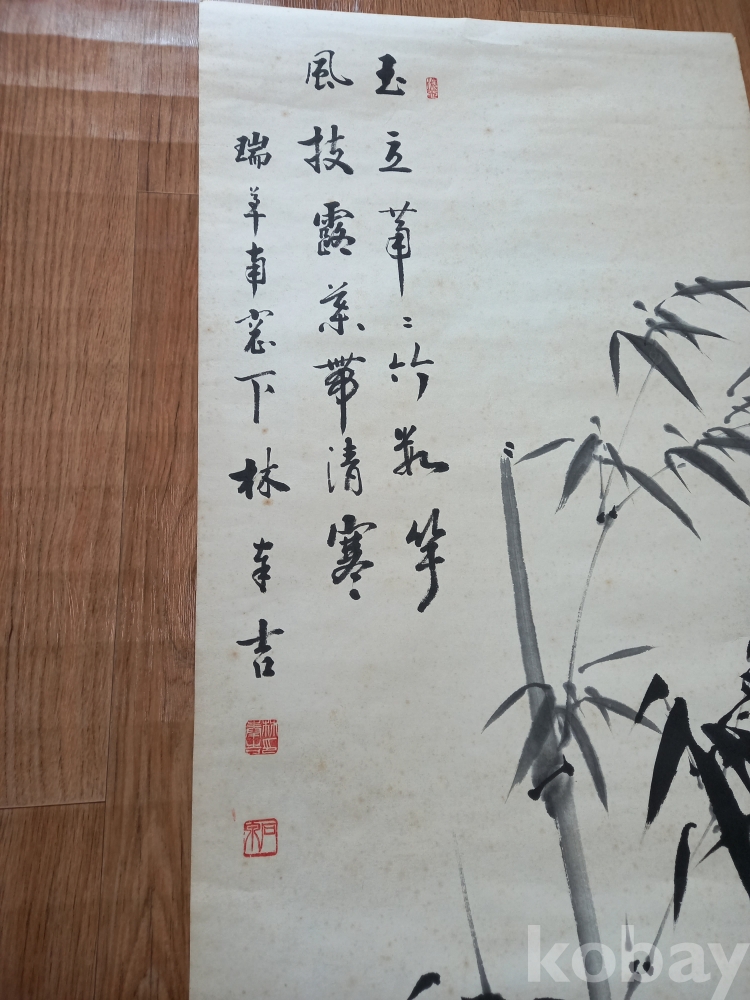 玉立蕭〻竹數竿
風枝露葉帶清寒
瑞草南窓下 林幸吉
kobay